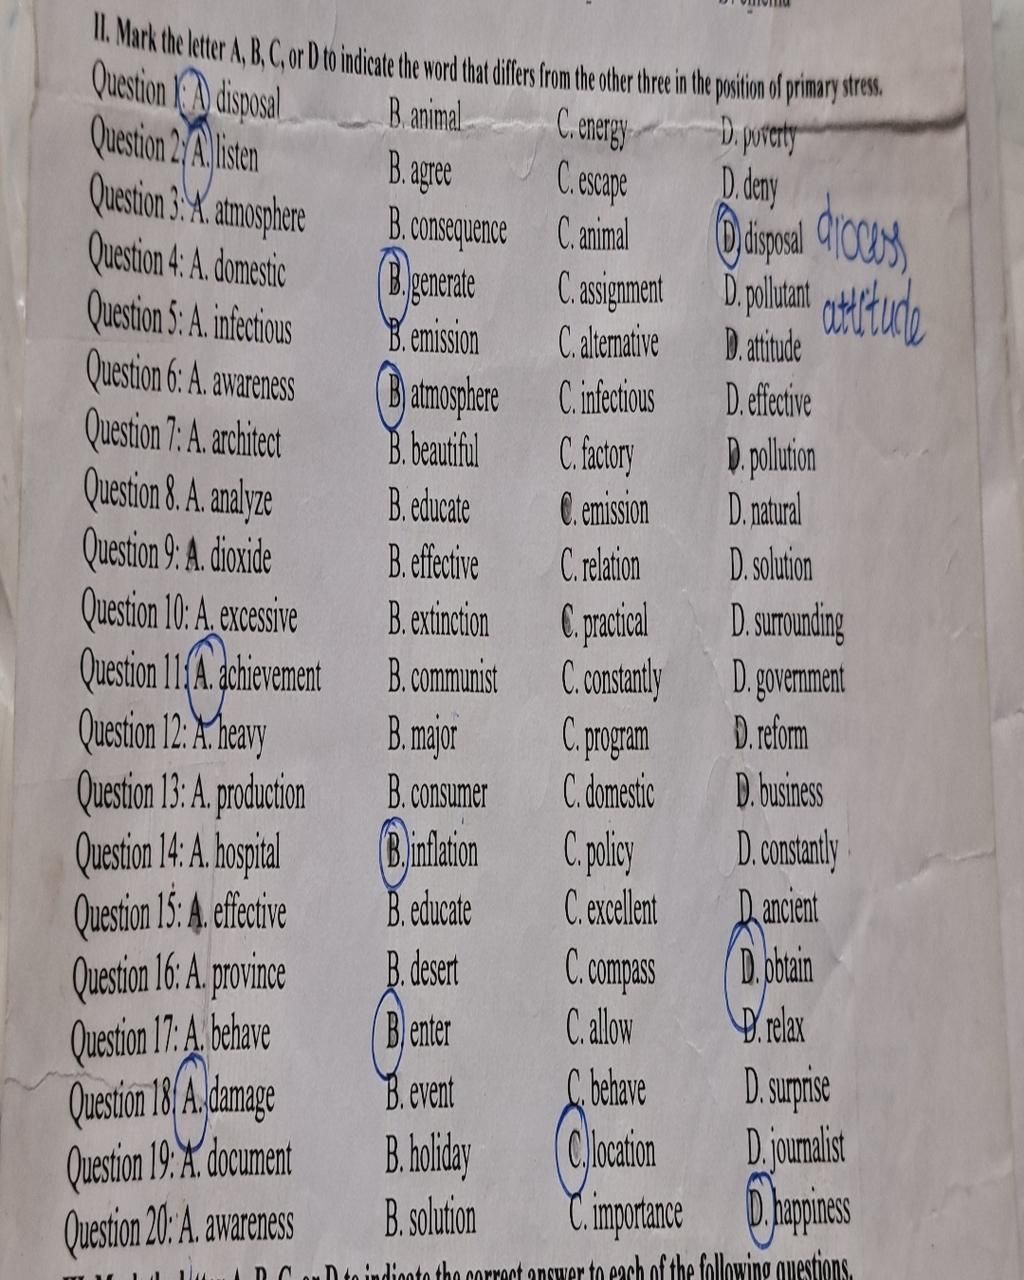 II. Mark the letter A, B, C, or D to indicate the word that differs from the other three in the position of primary stress.
Question 1: A. disposal B. animal C. energy D. poverty
Question 2: A. listen B. agree C. escape D. deny
Question 3: A. atmosphere B. consequence C. animal D. disposal
Question 4: A. domestic B. generate C. assignment D. pollutant
attitude
Question 5: A. infectious B. emission C. alternative D. attitude
Question 6: A. awareness B. atmosphere C. infectious D. effective
Question 7: A. architect B. beautiful C. factory D. pollution
Question 8. A. analyze B. educate C. emission D. natural
Question 9: A. dioxide B. effective C. relation D. solution
Question 10: A. excessive B. extinction C. practical D. surrounding
Question 11: A. achievement B. communist C. constantly D. government
Question 12: A. heavy B. major C. program D. reform
Question 13: A. production B. consumer C. domestic D. business
Question 14: A. hospital B. inflation C. policy D. constantly
Question 15: A. effective B. educate C. excellent D. ancient
Question 16: A. province B. desert C. compass D. obtain
Question 17: A. behave B. enter C. allow D. relax
Question 18: A. damage B. event C. behave D. surprise
Question 19: A. document B. holiday C. location D. journalist
Question 20: A. awareness B. solution C. importance D. happiness
III. Mark the letter A, B, C, or D to indicate the correct answer to each of the following questions.